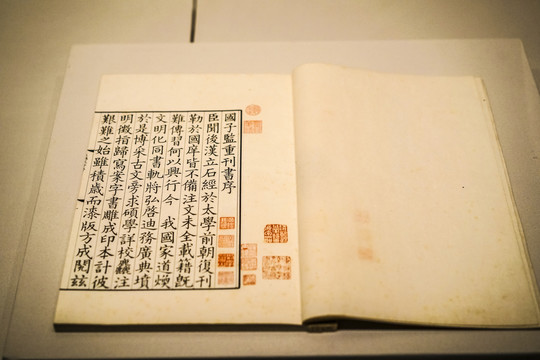 國子監重刊書序
臣聞後漢立石經於太學前朝復刊
勒於國庠皆不備注文未全載籍既
難傳習何以興行今 我國家道煥
文明化同書軌將弘啓迪務廣典墳
於是博采古文旁求碩學詳校箋注
明徵指歸寫案字書雕成印本計彼
艱難之始雖積歲而漆版方成閱茲